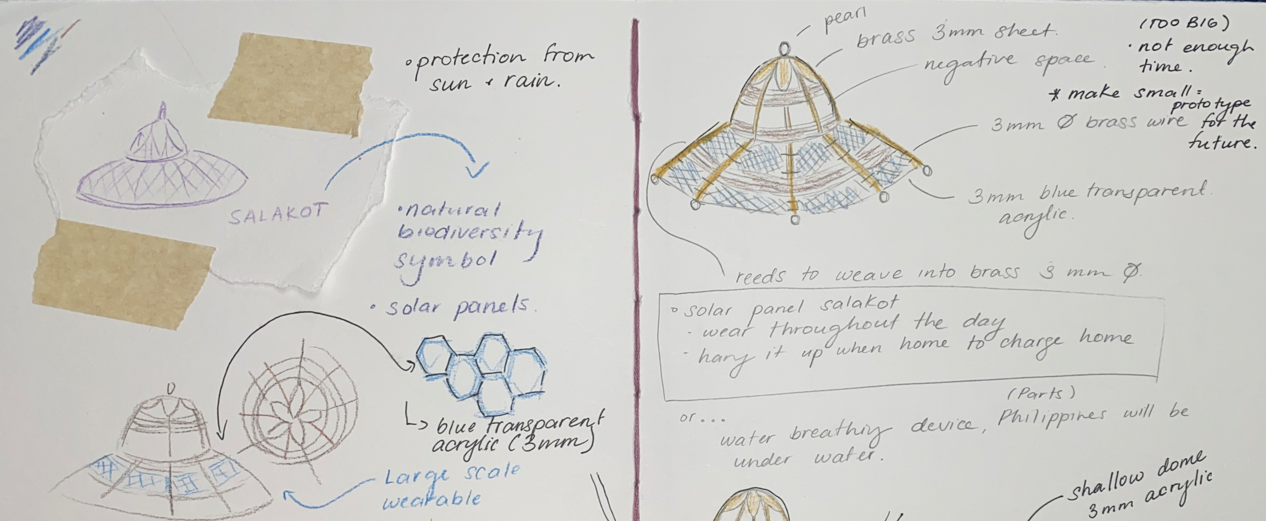 • protection from
sun + rain.
SALAKOT
• natural
biodiversity
symbol
• solar panels.
↳ blue transparent
acrylic (3mm)
Large scale
wearable
pearl
brass 3mm sheet.
negative space.
(TOO BIG)
• not enough
time.
* make small:
prototype
for the
future.
3mm Ø brass wire
3mm blue transparent
acrylic.
reeds to weave into brass 3 mm Ø
• solar panel salakot
• wear throughout the day
• hang it up when home to charge home
(Parts)
or...
water breathing device, Philippines will be
under water.
shallow dome
3mm acrylic